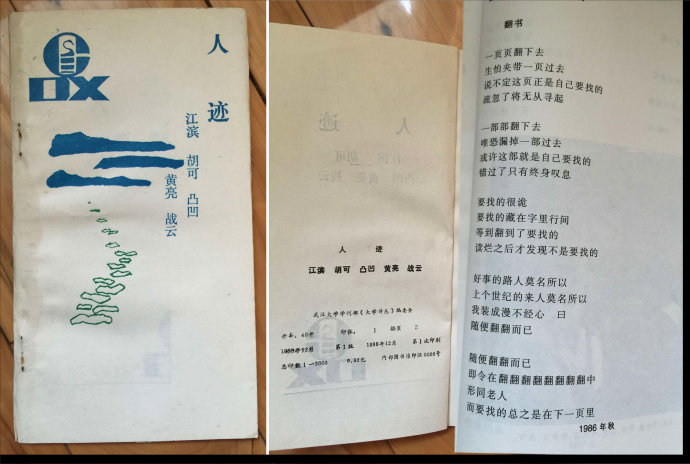 DX
人迹
江滨 胡可 凸凹
黄亮 战云
人 迹
江滨 胡可 凸凹 黄亮 战云
武汉大学学刊部《大学诗丛》编委会
开本:40开 印张:1 插页 2
1988年12月 第1版 1988年12月 第1次印刷
总印数1—2000 0.92元 内部图书准印证0006号
翻书
一页页翻下去
生怕夹带一页过去
说不定这页正是自己要找的
疏忽了将无从寻起
一部部翻下去
唯恐漏掉一部过去
或许这部就是自己要找的
错过了只有终身叹息
要找的很诡
要找的藏在字里行间
等到翻到了要找的
读烂之后才发现不是要找的
好事的路人莫名所以
上个世纪的来人莫名所以
我装成漫不经心 曰
随便翻翻而已
随便翻翻而已
即令在翻翻翻翻翻翻翻翻中
形同老人
而要找的总之是在下一页里
1986年秋